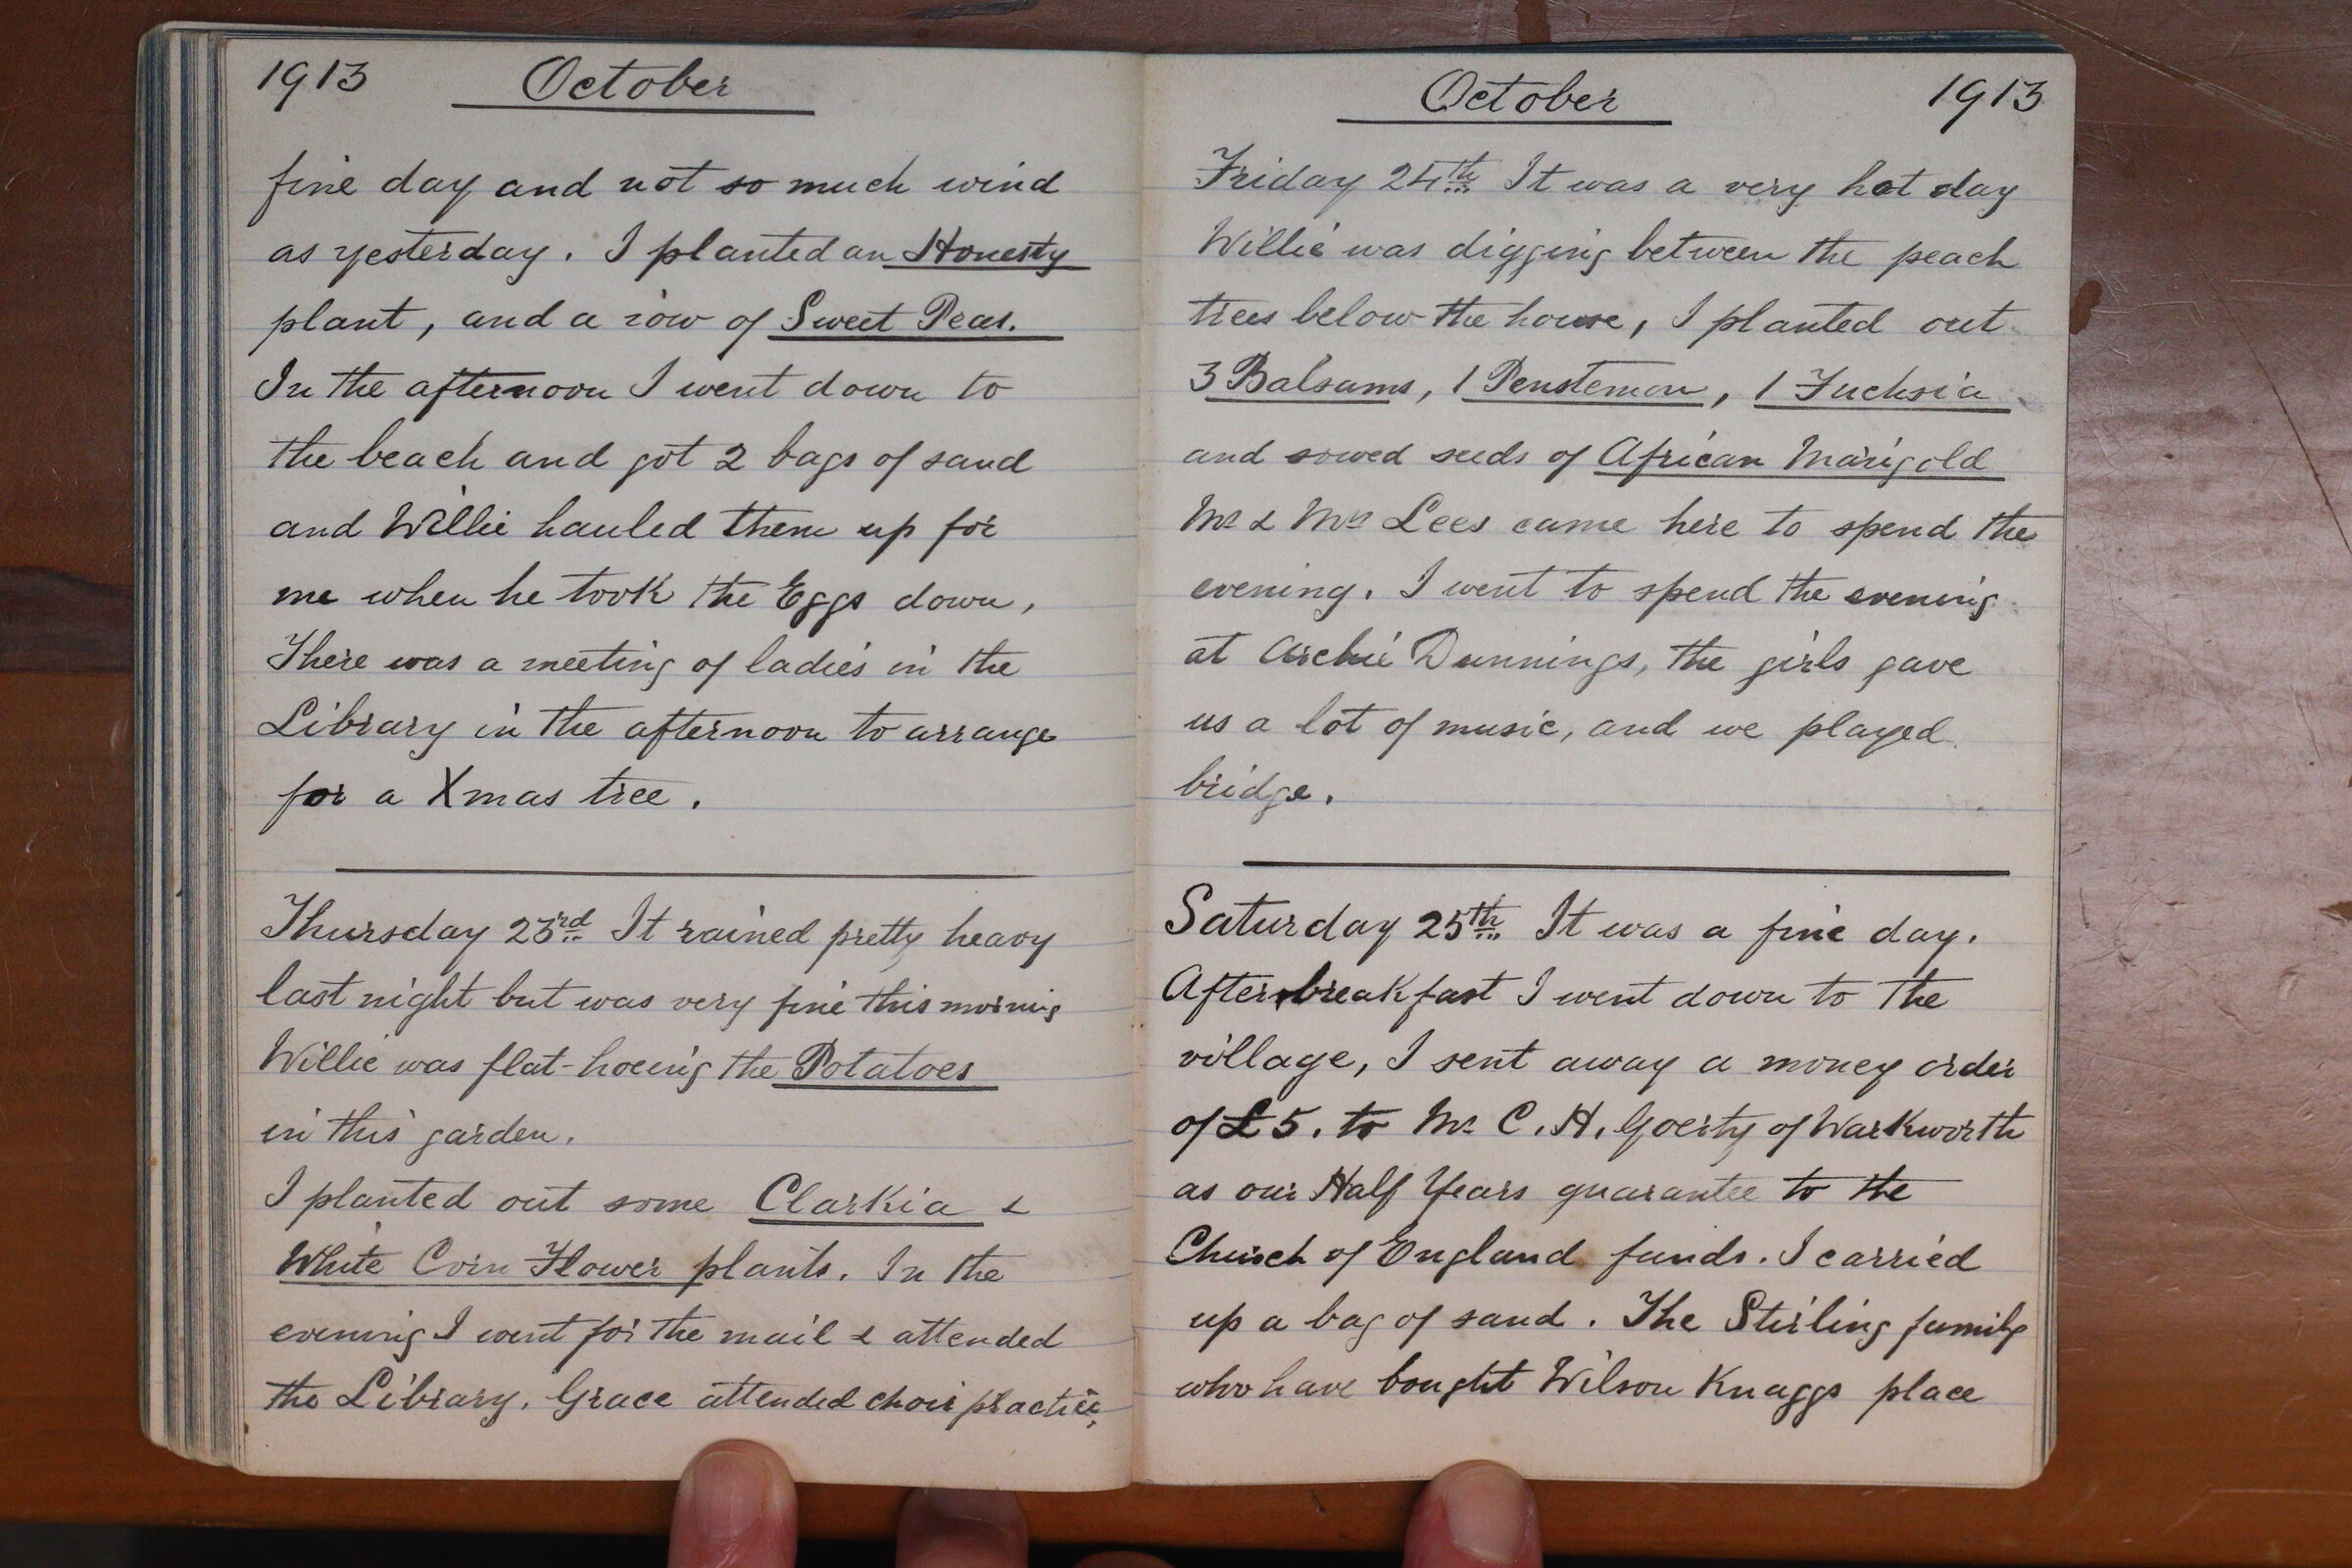 1913 October
fine day and not so much wind
as yesterday. I planted an Honesty
plant, and a row of Sweet Peas.
In the afternoon I went down to
the beach and got 2 bags of sand
and Willie hauled them up for
me when he took the Eggs down,
There was a meeting of ladies in the
Library in the afternoon to arrange
for a Xmas tree.
Thursday 23rd It rained pretty heavy
last night but was very fine this morning
Willie was flat-hoeing the Potatoes
in this garden.
I planted out some Clarkia &
White Corn Flower plants. In the
evening I went for the mail & attended
the Library. Grace attended choir practice,
October 1913
Friday 24th It was a very hot day
Willie was digging between the peach
trees below the house, I planted out
3 Balsams, 1 Penstemon, 1 Fuchsia
and sowed seeds of African Marigold
Mr & Mrs Lees came here to spend the
evening. I went to spend the evening
at Archie Dunnings, the girls gave
us a lot of music, and we played
bridge.
Saturday 25th It was a fine day.
After breakfast I went down to the
village, I sent away a money order
of £5. to Mr C. H. Goerty of Warkworth
as our Half Years guarantee to the
Church of England funds. I carried
up a bag of sand. The Stirling family
who have bought Wilson Knaggs place